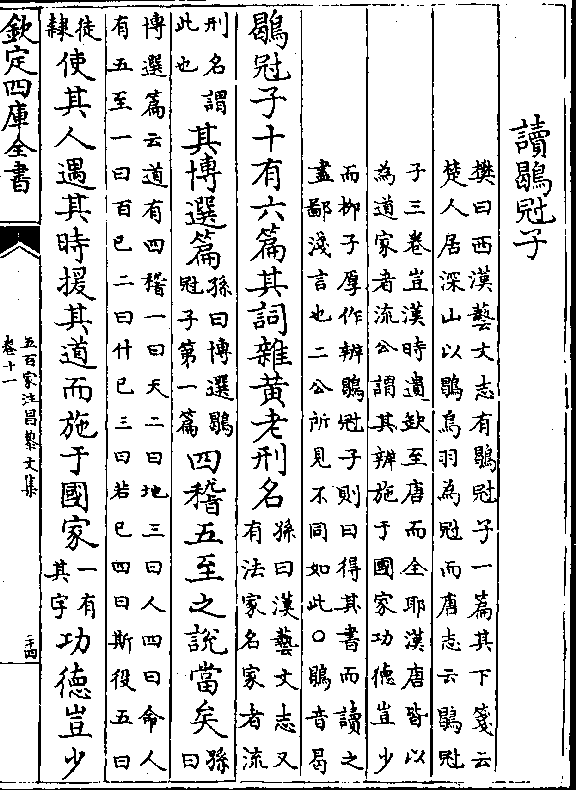 讀鶡冠子
樊曰西漢藝文志有鶡冠子一篇其下箋云
楚人居深山以鶡鳥羽為冠而唐志云鶡冠
子三卷豈漢時遺缺至唐而全耶漢唐皆以
為道家者流公謂其辨施于國家功德豈少
而柳子厚作辨鶡冠子則曰得其書而讀之
盡鄙淺言也二公所見不同如此○鶡音曷
鶡冠子十有六篇其詞雜黃老刑名
孫曰漢藝文志又
有法家名家者流
刑名謂
此也
其博選篇
孫曰博選鶡
冠子第一篇
四稽五至之說當矣
孫曰
博選篇云道有四稽一曰天二曰地三曰人四曰命人
有五至一曰百已二曰什已三曰若已四曰斯役五曰
徒
隸
使其人遇其時援其道而施于國家
一有
其字
功德豈少
欽定四庫全書
五百家注昌黎文集
卷十一
二十四